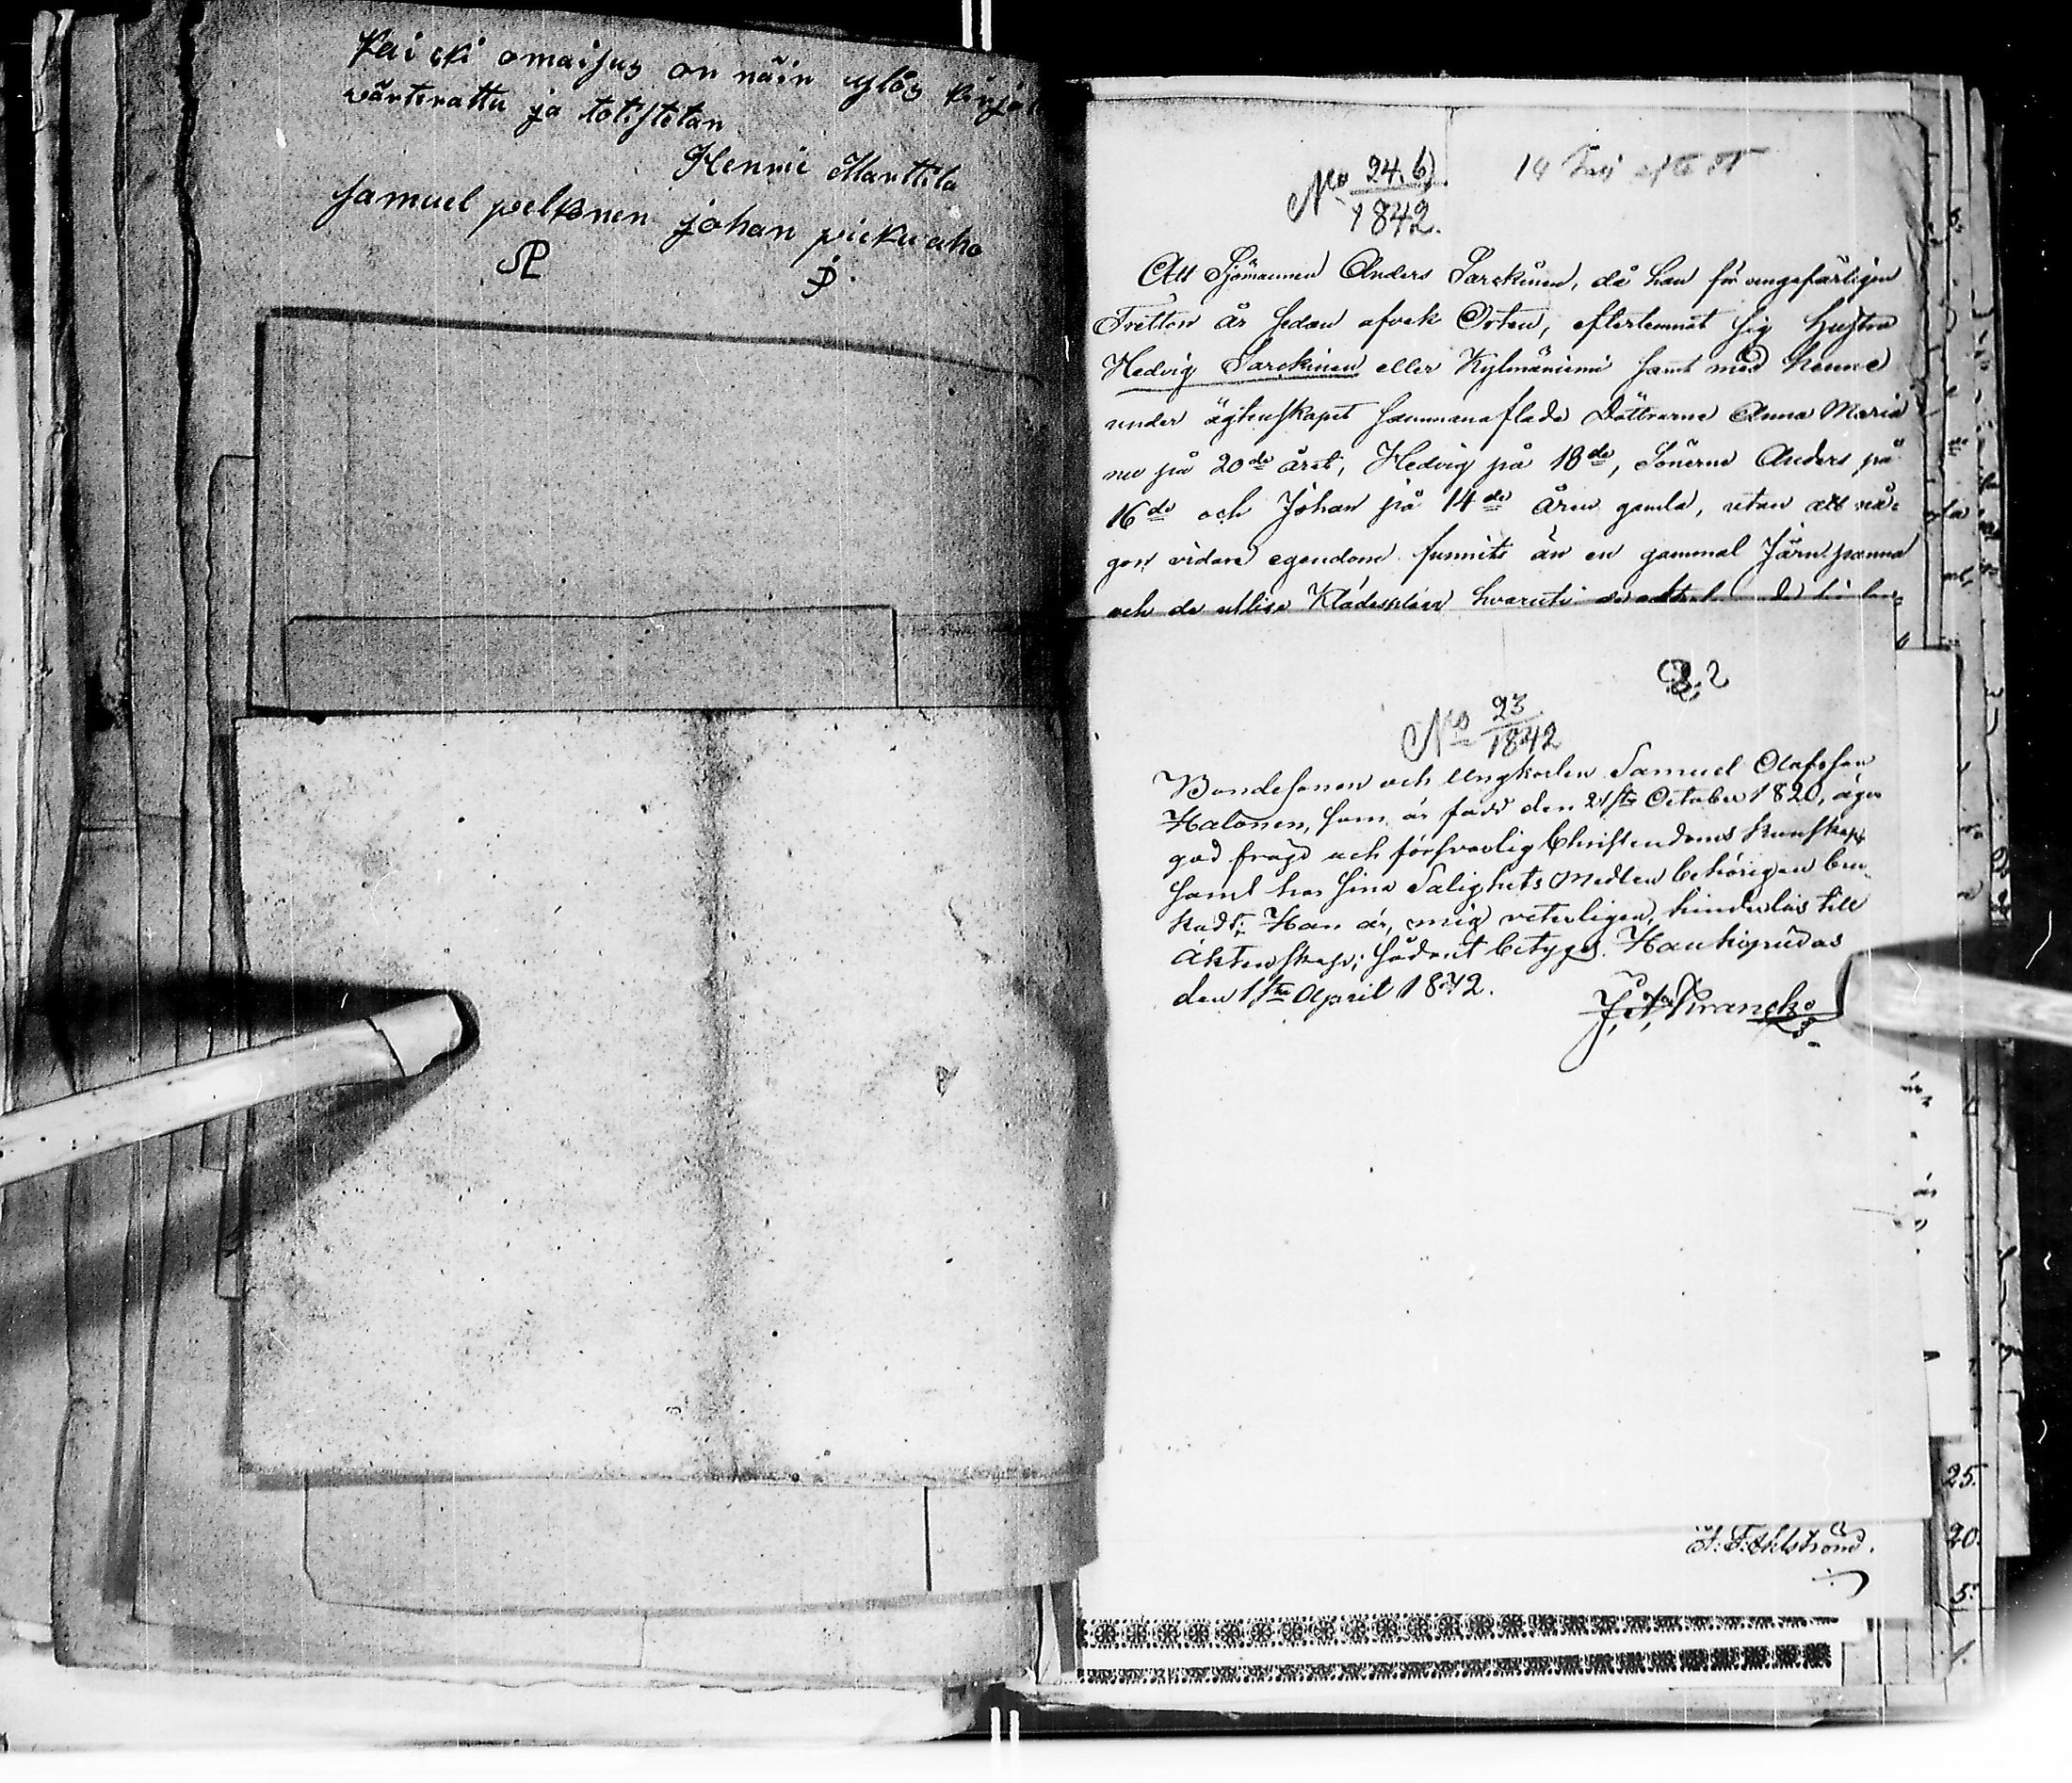 Kaicki omaisus on näin ylös kirjo
värterattu ja totistetan
Hennric Marttila
Samuel pelkonen johan pickuaho
SP JP
No 24.b)
1842.
Att Sjömannen Anders Sarckinen, då han för ongefärligen
Tretton år sedan afvek Orten, efterlemnat sig hustru
Hedvig Sarckinen eller Kylmäniemi samt med henne
under ägtenskapet sammanaflade Döttrarne Anna Maria
nu på 20de året, Hedvig på 18de, Sönerne Anders på
16de och Johan på 14de åren gamla, utan att nå-
gon vidare egendom funnits än en gammal Järnpanna
och de utslitna Klädesplagg hvaruti
22
No 23
1842
Bondesonen och Ungkarlen Samuel Olofsson
Halonen, som är född den 21sta October 1820, äger
god frägd och försvarlig Christendoms kunskap,
samt har sina Salighets Medlen behörigen bru-
kadt; Han är, mig veterligen, hinderlös till
Äktenskap; sådant betygas. Haukipudas
den 1sta April 1842.
J. A. Franck
J. F. Ahlström.
25.
20.
5.